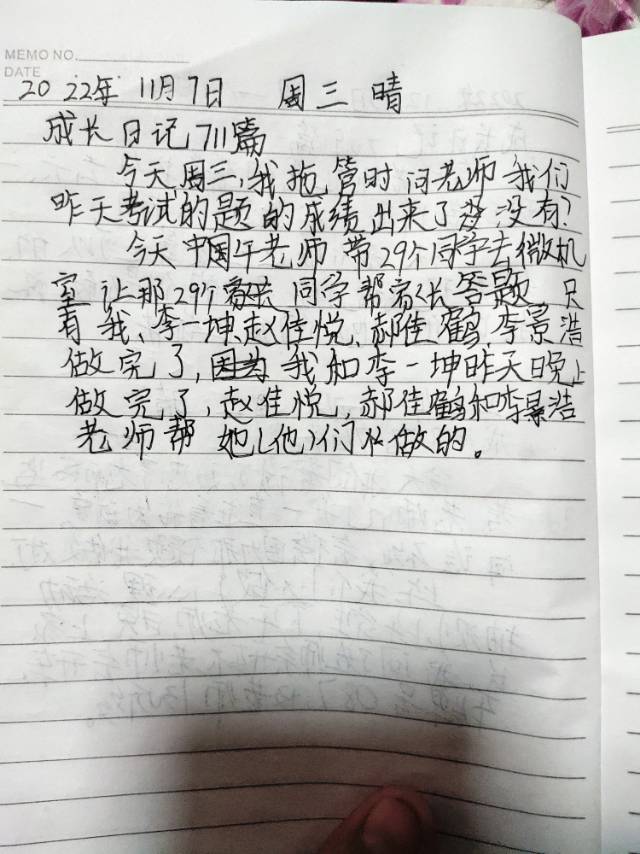 MEMO NO.
DATE
2022年 11月7日 周三 晴
成长日记711篇
今天周三,我拖管时问老师我们
昨天考试的题的成绩出来了没有?
今天中午老师带29个同学去微机
室让那29个同学帮家长答题,只
有我、李一坤、赵佳悦、郝佳鹤、李景浩
做完了,因为我和李一坤昨天晚上
做完了,赵佳悦、郝佳鹤和李景浩
老师帮她(他)们做的。